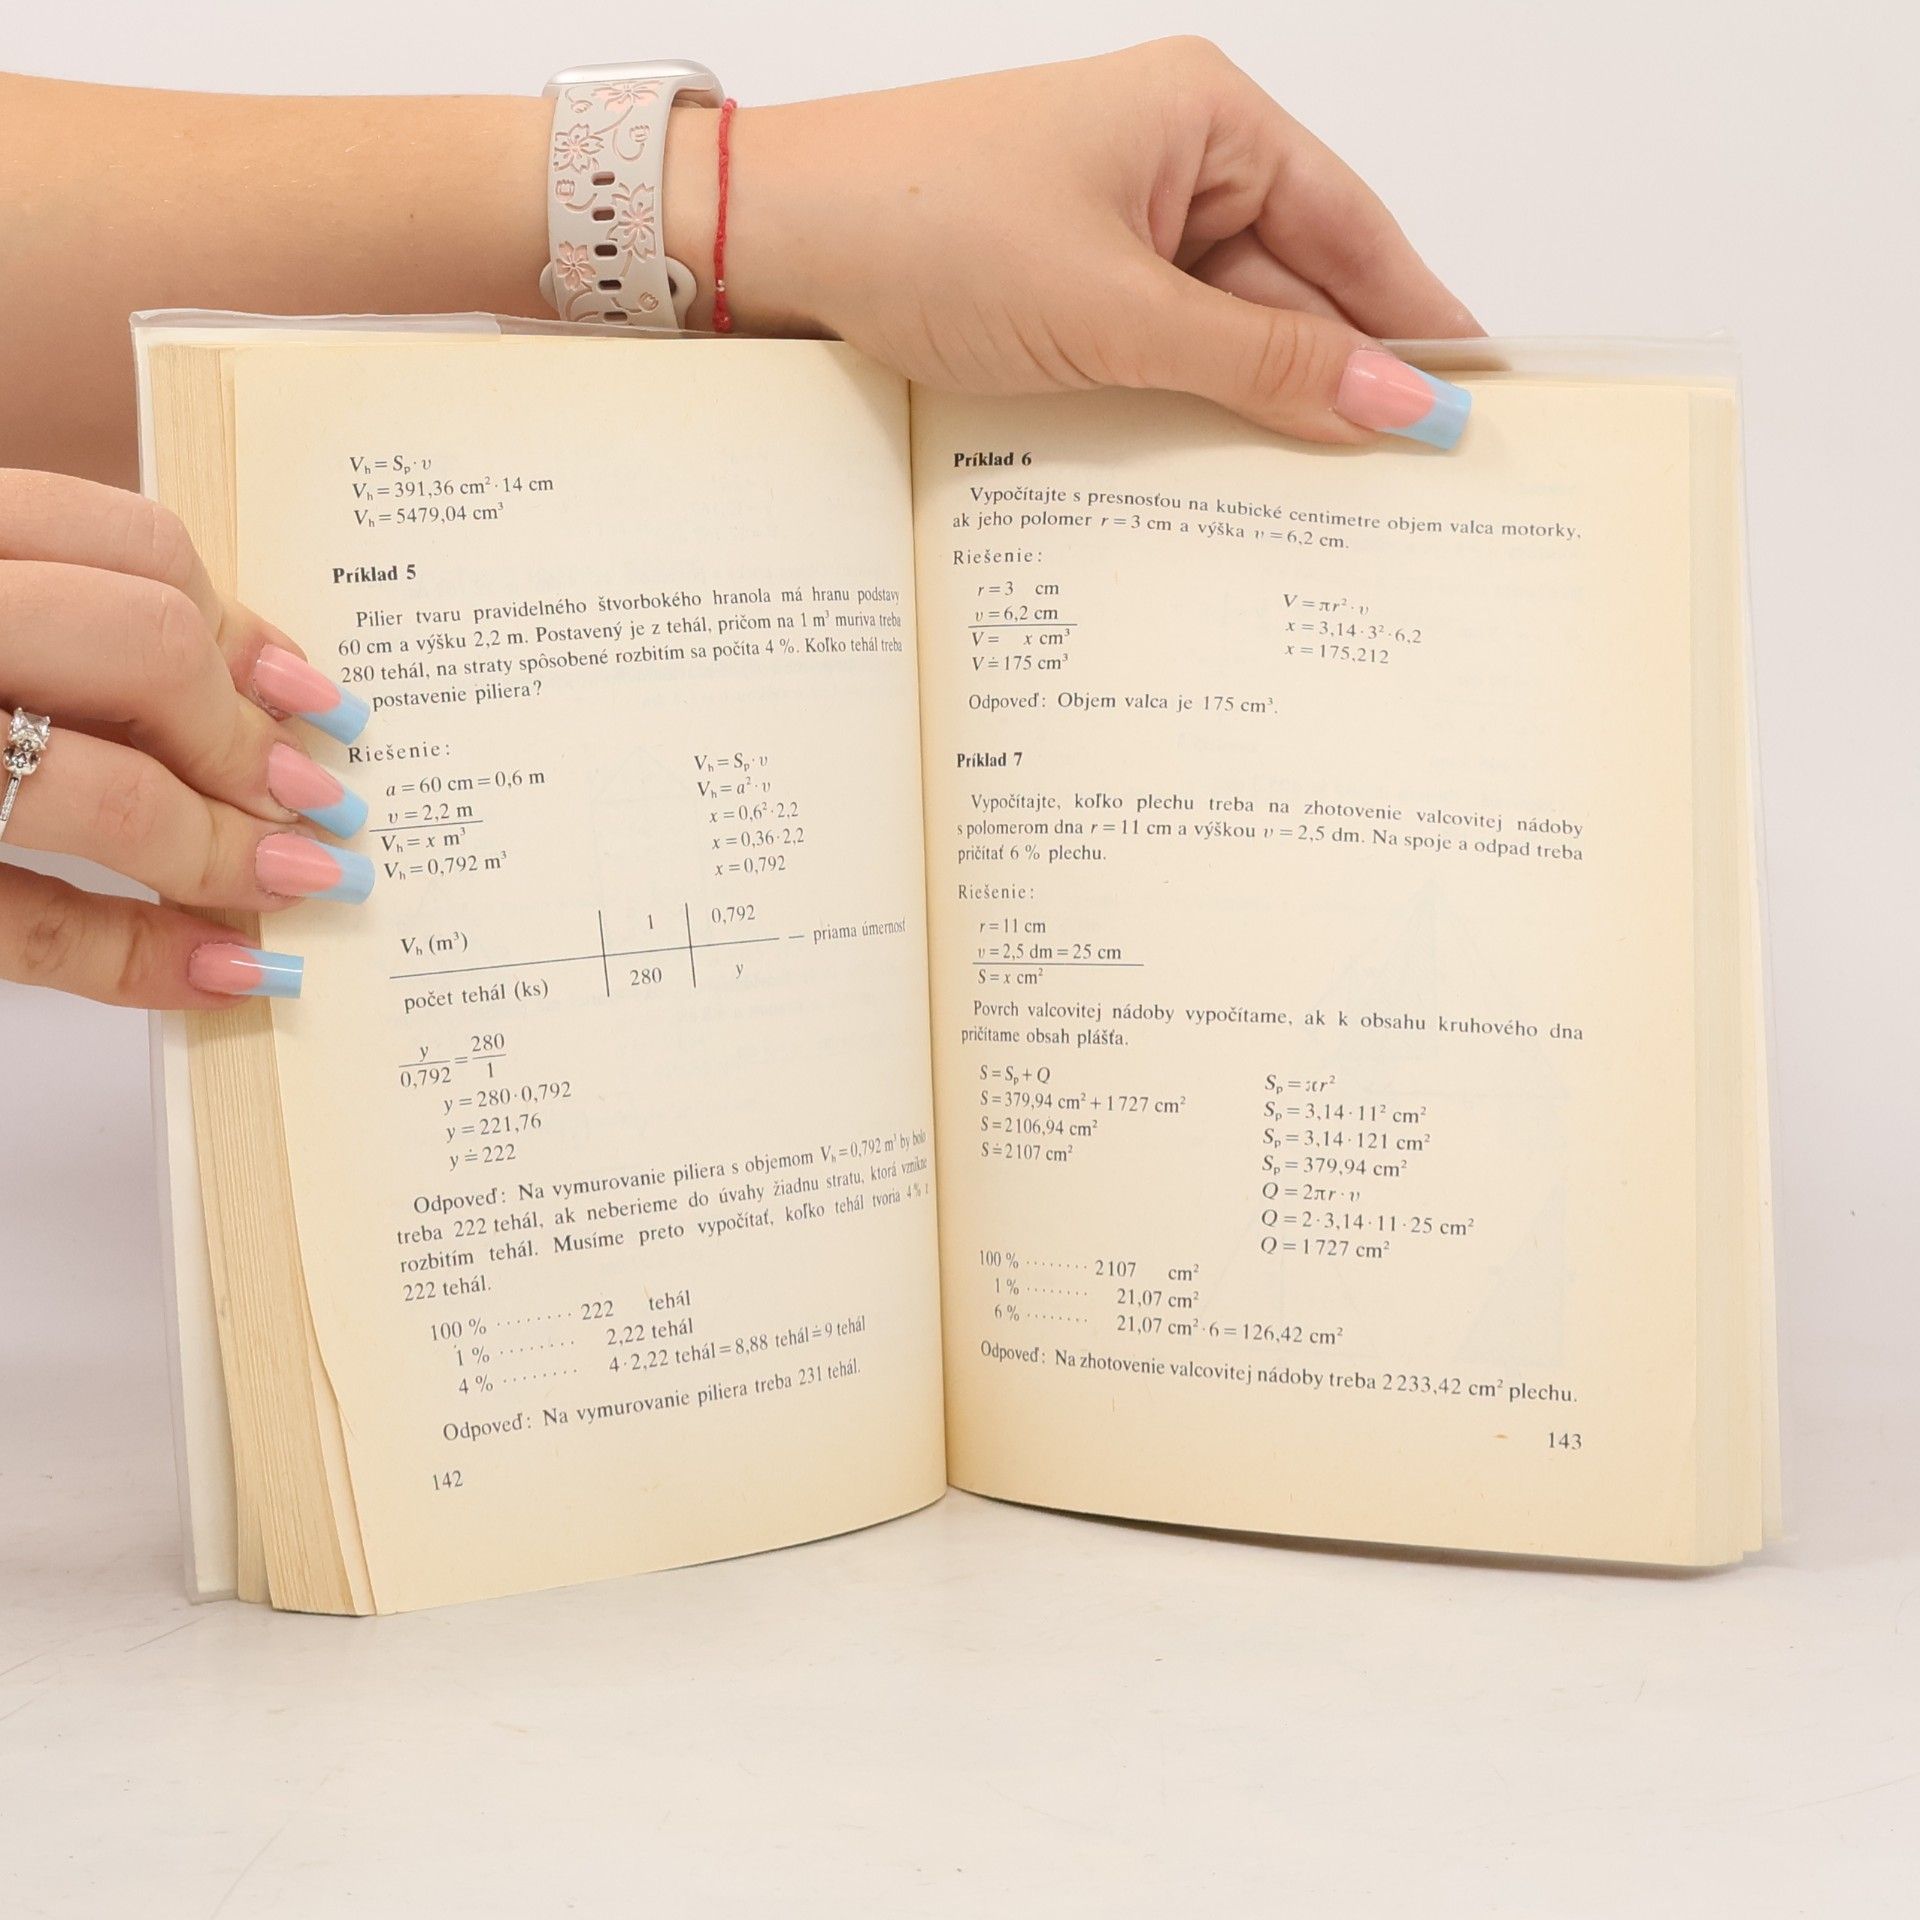 V_h = S_p · v
V_h = 391,36 cm² · 14 cm
V_h = 5479,04 cm³
Príklad 5
Pilier tvaru pravidelného štvorbokého hranola má hranu podstavy
60 cm a výšku 2,2 m. Postavený je z tehál, pričom na 1 m³ muriva treba
280 tehál, na straty spôsobené rozbitím sa počíta 4 %. Koľko tehál treba
postavenie piliera?
Riešenie:
a = 60 cm = 0,6 m
v = 2,2 m
V_h = x m³
V_h = 0,792 m³
V_h = S_p · v
V_h = a² · v
x = 0,6² · 2,2
x = 0,36 · 2,2
x = 0,792
V_h (m³) 1 0,792 — priama úmernosť
počet tehál (ks) 280 y
y/0,792 = 280/1
y = 280 · 0,792
y = 221,76
y ≐ 222
Odpoveď: Na vymurovanie piliera s objemom V_h = 0,792 m³ by bolo
treba 222 tehál, ak neberieme do úvahy žiadnu stratu, ktorá vznikne
rozbitím tehál. Musíme preto vypočítať, koľko tehál tvoria 4 % z
222 tehál.
100 % ........ 222 tehál
1 % ........ 2,22 tehál
4 % ........ 4 · 2,22 tehál = 8,88 tehál ≐ 9 tehál
Odpoveď: Na vymurovanie piliera treba 231 tehál.
142
Príklad 6
Vypočítajte s presnosťou na kubické centimetre objem valca motorky,
ak jeho polomer r = 3 cm a výška v = 6,2 cm.
Riešenie:
r = 3 cm
v = 6,2 cm
V = x cm³
V ≐ 175 cm³
V = πr² · v
x = 3,14 · 3² · 6,2
x = 175,212
Odpoveď: Objem valca je 175 cm³.
Príklad 7
Vypočítajte, koľko plechu treba na zhotovenie valcovitej nádoby
s polomerom dna r = 11 cm a výškou v = 2,5 dm. Na spoje a odpad treba
pričítať 6 % plechu.
Riešenie:
r = 11 cm
v = 2,5 dm = 25 cm
S = x cm²
Povrch valcovitej nádoby vypočítame, ak k obsahu kruhového dna
pričítame obsah plášťa.
S = S_p + Q
S = 379,94 cm² + 1 727 cm²
S = 2106,94 cm²
S ≐ 2107 cm²
S_p = πr²
S_p = 3,14 · 11² cm²
S_p = 3,14 · 121 cm²
S_p = 379,94 cm²
Q = 2πr · v
Q = 2 · 3,14 · 11 · 25 cm²
Q = 1 727 cm²
100 % ........ 2107 cm²
1 % ........ 21,07 cm²
6 % ........ 21,07 cm² · 6 = 126,42 cm²
Odpoveď: Na zhotovenie valcovitej nádoby treba 2 233,42 cm² plechu.
143